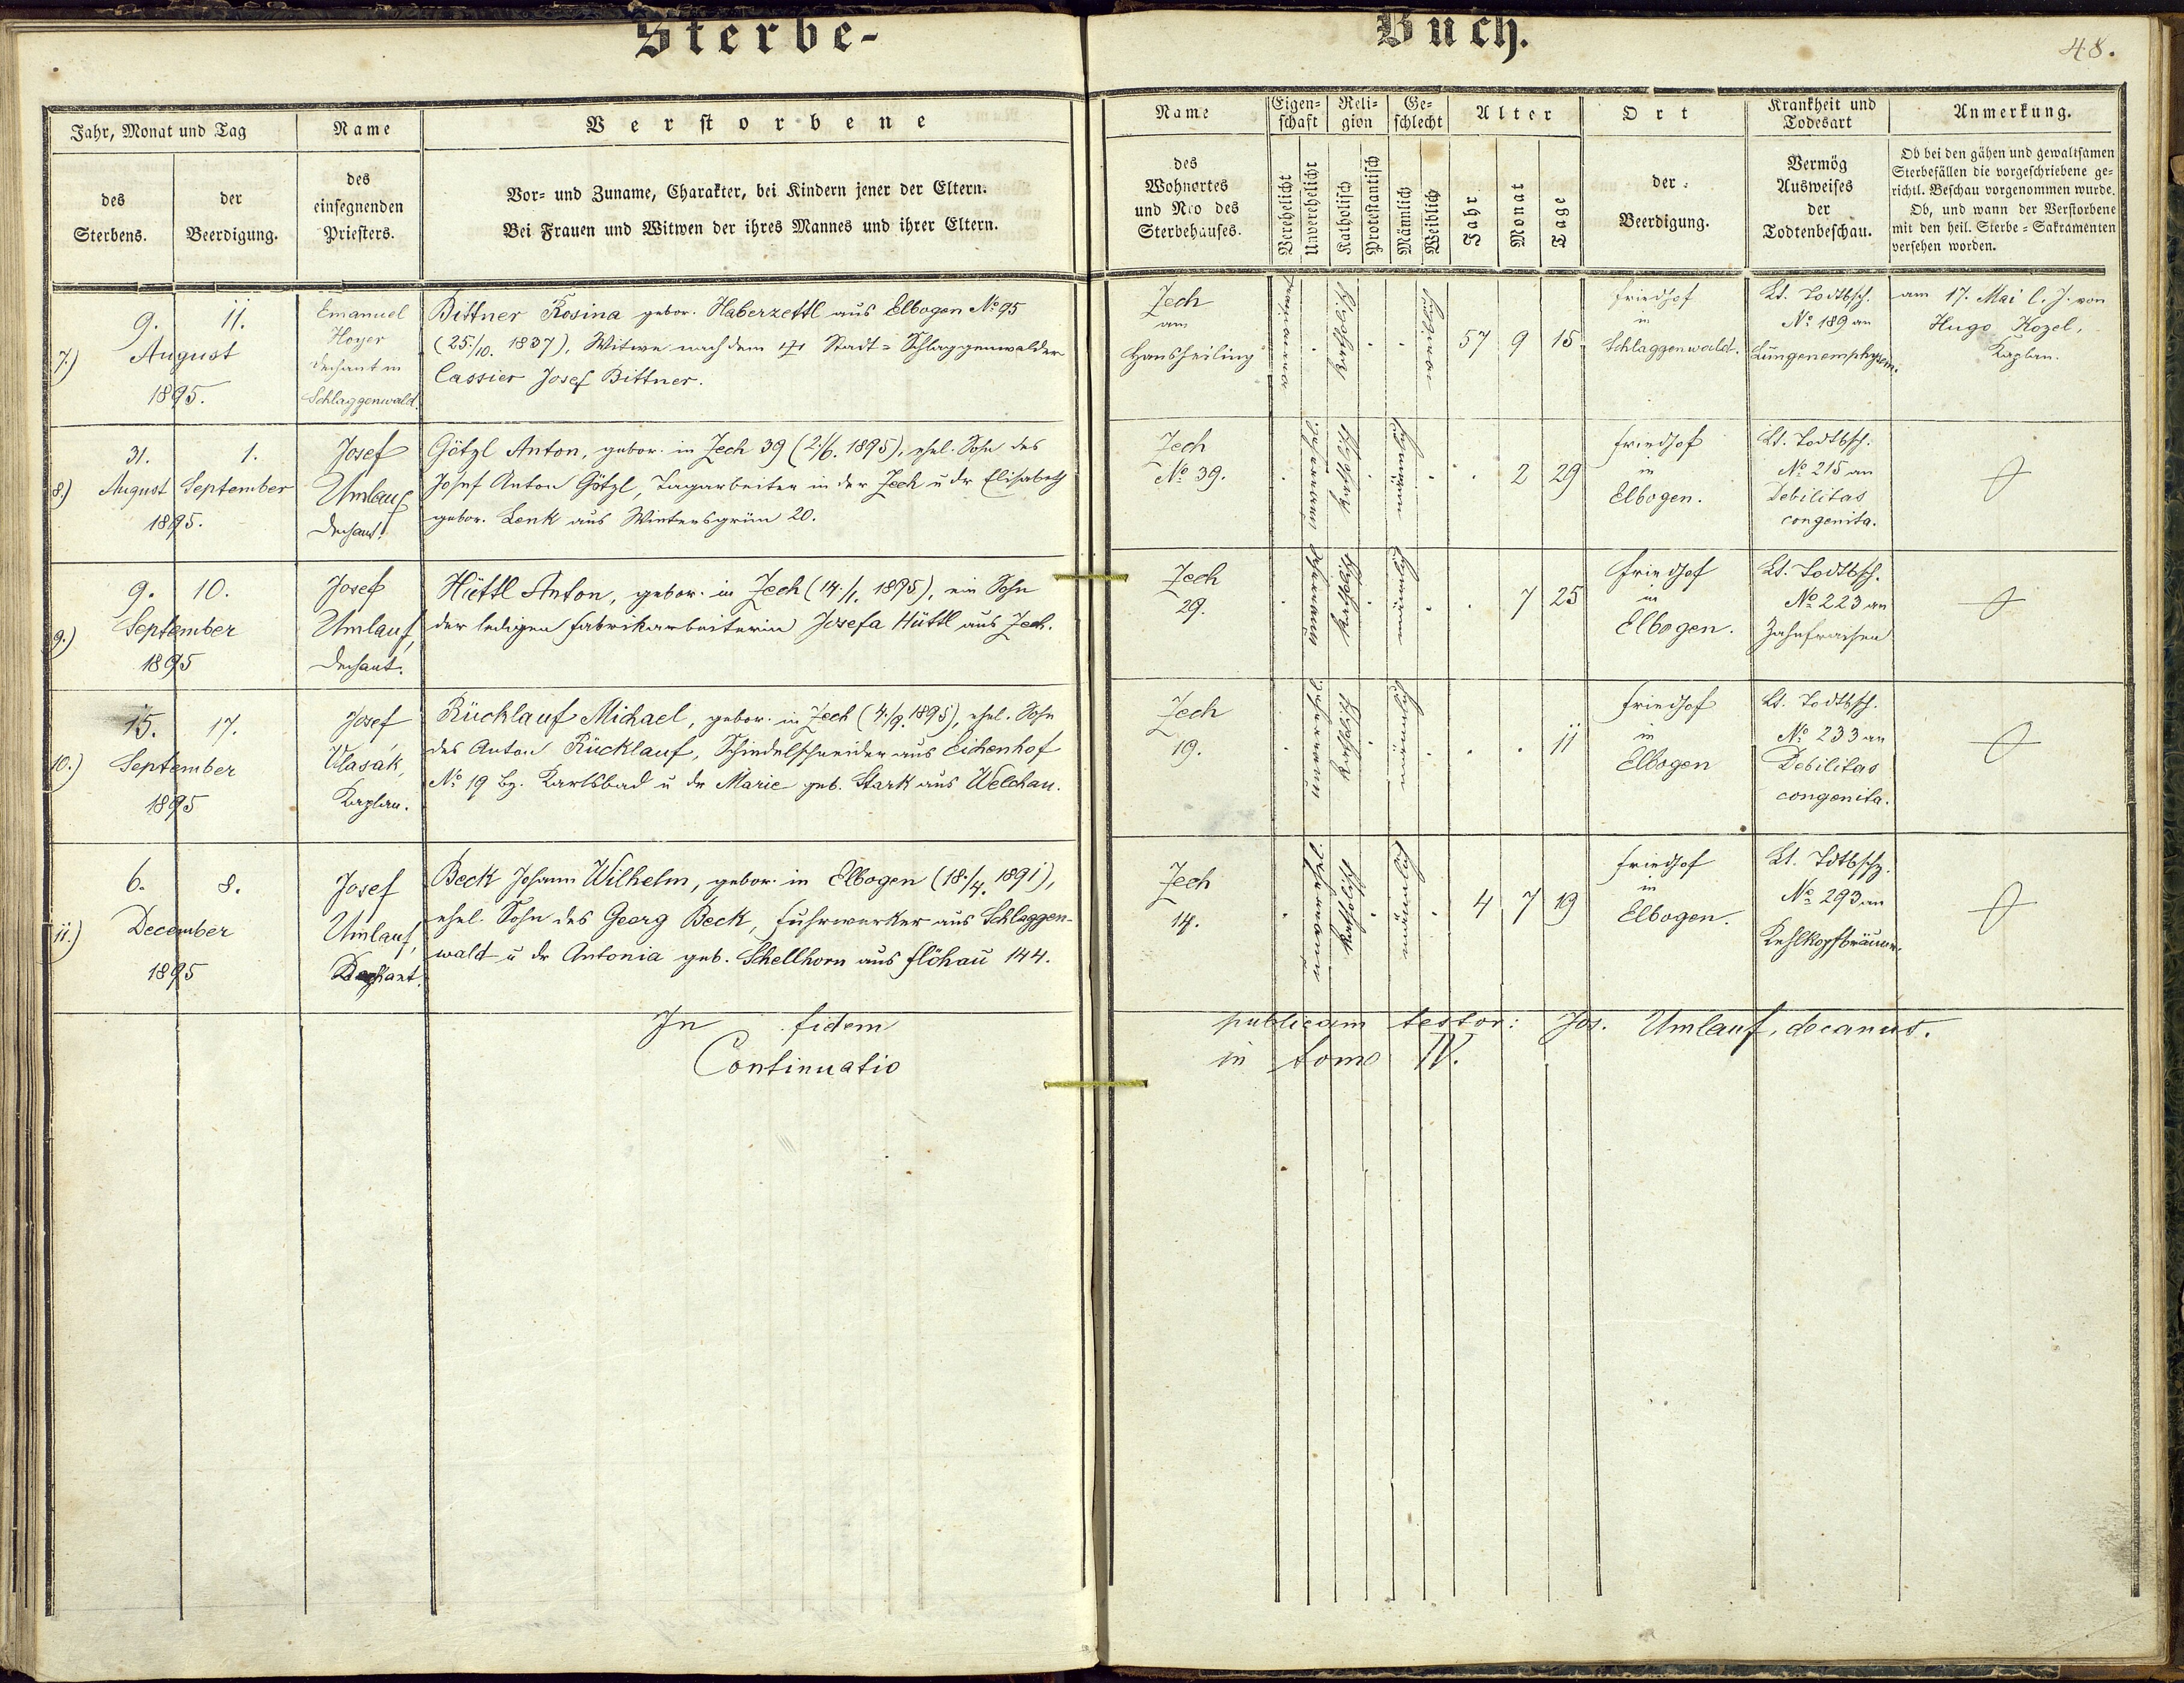 Sterbe-
Buch.
48.
Jahr, Monat und Tag
Name
Verstorbene
des
Sterbens.
der
Beerdigung.
des
einsegnenden
Priesters.
Vor- und Zuname, Charakter, bei Kindern jener der Eltern.
Bei Frauen und Witwen der ihres Mannes und ihrer Eltern.
Name
Eigen=
schaft
Reli=
gion
Ge=
schlecht
Alter
Ort
Krankheit und
Todesart
Anmerkung.
des
Wohnortes
und Nro des
Sterbehauses.
Verehelicht
Unverehelicht
Katholisch
Protestantisch
Männlich
Weiblich
Jahr
Monat
Tage
der
Beerdigung.
Vermög
Ausweises
der
Todtenbeschau.
Ob bei den gähen und gewaltsamen
Sterbefällen die vorgeschriebene ge-
richtl. Beschau vorgenommen wurde.
Ob, und wann der Verstorbene
mit den heil. Sterbe=Sakramenten
versehen worden.
7.)
9. 11.
August
1895.
Emanuel
Hoyer
Dechant in
Schlaggenwald.
Bittner Rosina gebor. Haberzettl aus Elbogen No 95
(25./10. 1837), Witwe nach dem Stadt= Schlaggenwalder
Cassier Josef Bittner.
Zech
am
Hansheiling
katholisch
57 9 15
Friedhof
in
Schlaggenwald.
Lt. Todtbsch.
No 189 an
Lungenemphysem.
am 17. Mai l. J. von
Hugo Kozel,
Kaplan.
8.)
31. 1.
August September
1895.
Josef
Umlauf
Dechant.
Götzl Anton, gebor. in Zech 39 (2./6. 1895), ehel. Sohn des
Josef Anton Götzl, Tagarbeiter in der Zech u dr Elisabeth
gebor. Lenk aus Wintersgrün 20.
Zech
No 39.
katholisch
männlich
2 29
Friedhof
in
Elbogen.
Lt. Todtbsch.
No 215 an
Debilitas
congenita.
9.)
9. 10.
September
1895
Josef
Umlauf,
Dechant.
Hüttl Anton, gebor. in Zech (14./1. 1895), ein Sohn
der ledigen Fabrikarbeiterin Josefa Hüttl aus Zech.
Zech
29.
katholisch
männlich
7 25
Friedhof
in
Elbogen.
Lt. Todtbsch.
No 223 an
Zahnfraisen
10.)
15. 17.
September
1895
Josef
Vlasák,
Kaplan.
Rücklauf Michael, gebor. in Zech (4./9. 1895), ehel. Sohn
des Anton Rücklauf, Schindelschneider aus Eichenhof
No 19 Bz. Karlsbad u dr Marie geb. Stark aus Welchau.
Zech
19.
katholisch
männlich
11
Friedhof
in
Elbogen
Lt. Todtbsch.
No 233 an
Debilitas
congenita.
11.)
6. 8.
December
1895
Josef
Umlauf,
Dechant.
Beck Johann Wilhelm, gebor. in Elbogen (18./4. 1891),
ehel. Sohn des Georg Beck, Fuhrwerker aus Schlaggen-
wald u dr Antonia geb. Schellhorn aus Flöhau 144.
Zech
14.
katholisch
männlich
4 7 19
Friedhof
in
Elbogen.
Lt. Tdtbschg.
No 293 an
Kehlkopfbräune.
In fidem publicam testor: Jos. Umlauf, decanus.
Continuatio in tomo IV.